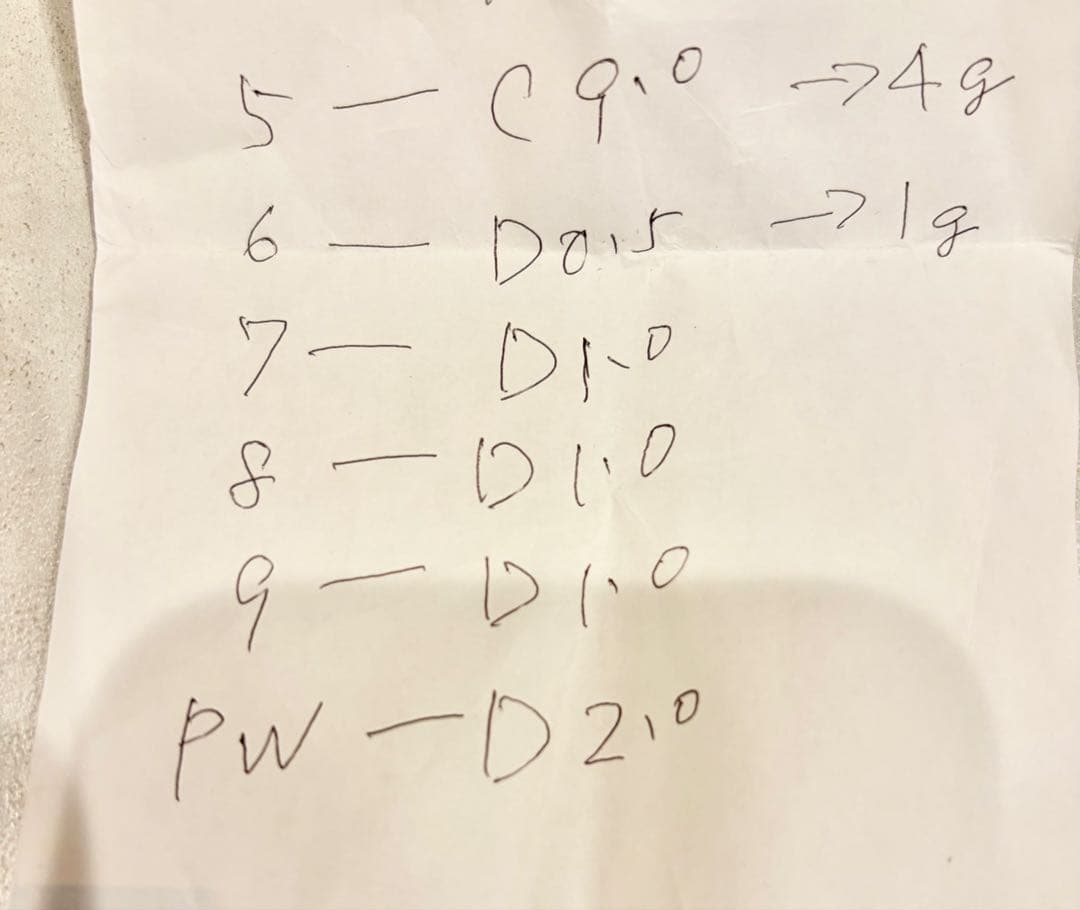 5 — C9.0 → 4g
6 — D0.5 → 1g
7 — D1.0
8 — D1.0
9 — D1.0
PW — D2.0